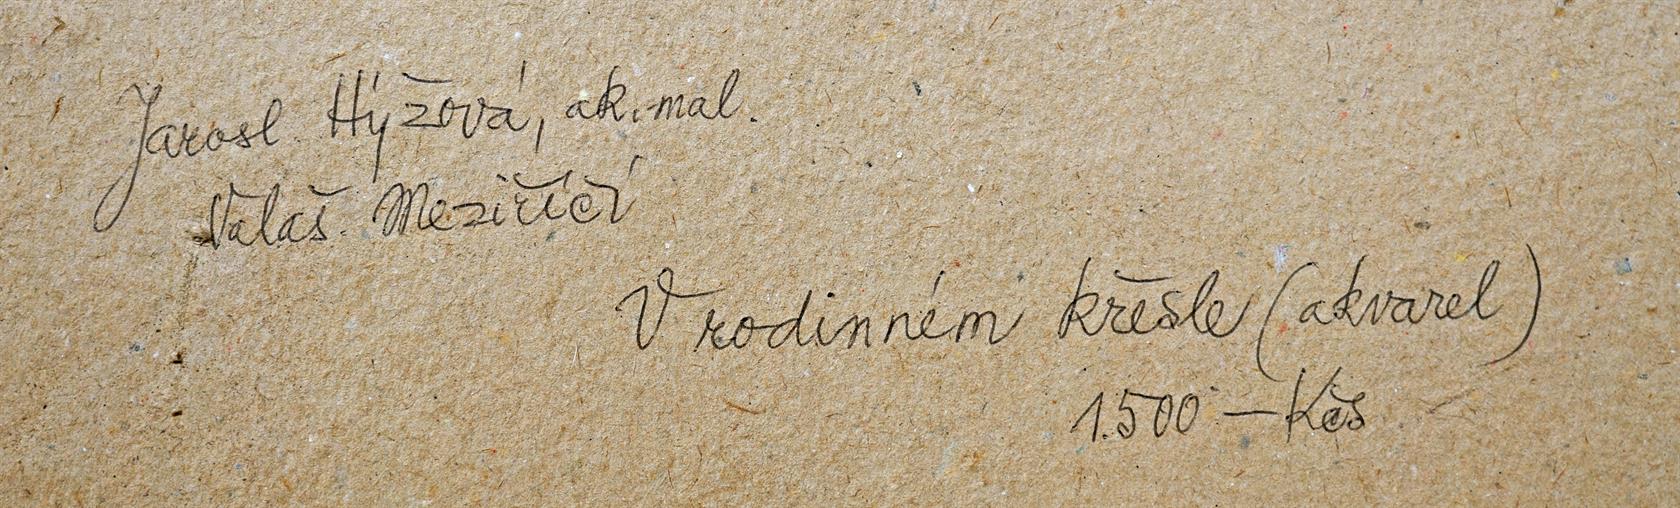 Jarosl. Hýžová, ak. mal.
Valaš. Meziříčí
V rodinném křesle (akvarel)
1.500 — Kčs